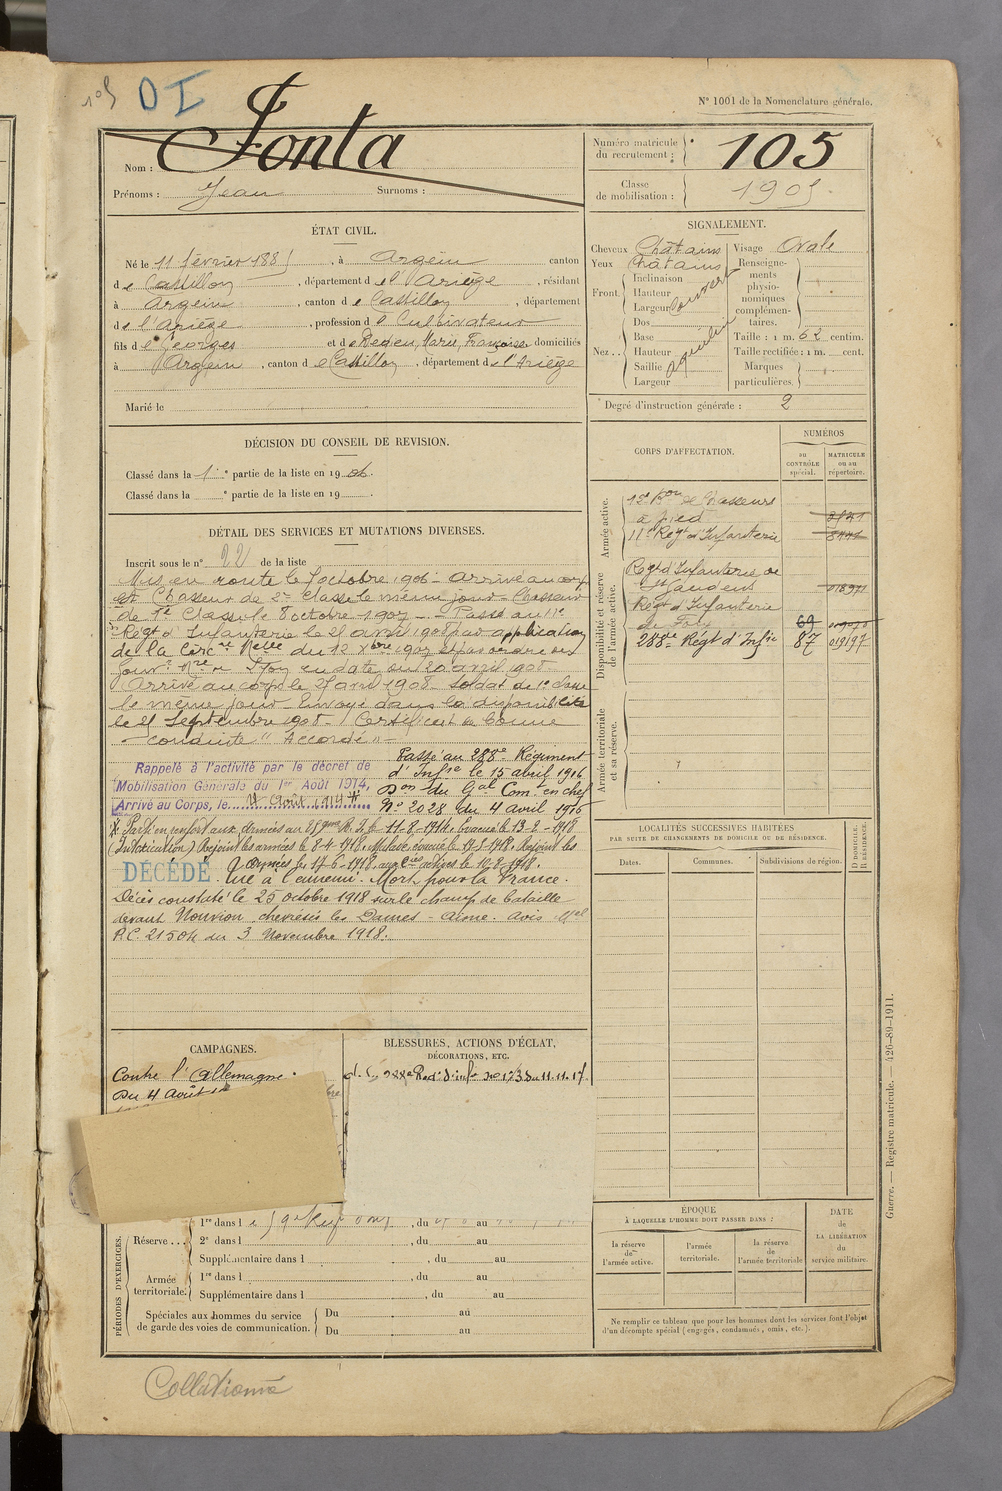 105 D I
N° 1001 de la Nomenclature générale.
Nom : Fonta
Prénoms : Jean Surnoms :
Numéro matricule du recrutement : 105
Classe de mobilisation : 1905
ÉTAT CIVIL.
Né le 11 février 1885, à Argein canton
de Castillon, département de l'Ariège, résidant
à Argein, canton de Castillon, département
de l'Ariège, profession de Cultivateur
fils de Georges et de Marie, Françoise domiciliés
à Argein, canton de Castillon, département de l'Ariège
Marié le
SIGNALEMENT.
Cheveux Châtains
Yeux Châtains
Front Inclinaison
Hauteur
Largeur
couvert
Nez Dos
Base
Hauteur
Saillie
Largeur
aquilin
Visage Ovale
Renseignements physionomiques complémentaires.
Taille : 1 m. 62 centim.
Taille rectifiée : 1 m. cent.
Marques particulières.
Degré d'instruction générale : 2
DÉCISION DU CONSEIL DE REVISION.
Classé dans la 1e partie de la liste en 1906.
Classé dans la e partie de la liste en 19 .
CORPS D'AFFECTATION.
NUMÉROS
au CONTRÔLE spécial.
MATRICULE ou au répertoire.
Armée active.
12e Bon de Chasseurs
à pied
11e Régt d'Infanterie
Disponibilité et réserve de l'armée active.
Régt d'Infanterie de
St Gaudens
Régt d'Infanterie
de Foix 69
288e Régt d'Infie 87 019197
Armée territoriale et sa réserve.
DÉTAIL DES SERVICES ET MUTATIONS DIVERSES.
Inscrit sous le n° 22 de la liste
Mis en route le 7 octobre 1906 - Arrivé au corps
et Chasseur de 2e Classe le même jour - Chasseur
de 1e Classe le 8 octobre 1907 - Passé au 11e
Régt d'Infanterie le 21 avril 1908 par application
de la Circre Melle du 12 Xbre 1907 et par ordre du
en date du 20 avril 1908
Arrivé au corps le 27 avril 1908 - Soldat de 1e Classe
le même jour - Envoyé dans la disponibilité
le 21 Septembre 1908 - Certificat de bonne
conduite "Accordé" -
Rappelé à l'activité par le décret de
Mobilisation Générale du 1er Août 1914,
Arrivé au Corps, le 4 Août 1914 *
Passé au 288e Régiment
d'Infie le 15 avril 1916
Don du Gal Comt en chef
No 2028 du 4 avril 1916
* Parti en renfort aux armées au R. I. le 11-8-1914. Evacué le 13-2-1918
(Intoxication) Rejoint les armées le 8-4-1918. évacué le Rejoint les
armées le 17-6-1918, aux Cies actives le 10-8-1918.
DÉCÉDÉ. Tué à l'ennemi. Mort pour la France.
Décès constaté le 25 octobre 1918 sur le champ de bataille
devant Nouvion, chevresis les Dames - Aisne. Avis Mel
P.C. 21504 du 3 Novembre 1918.
LOCALITÉS SUCCESSIVES HABITÉES
PAR SUITE DE CHANGEMENTS DE DOMICILE OU DE RÉSIDENCE.
Dates. Communes. Subdivisions de région. D DOMICILE. R RÉSIDENCE.
CAMPAGNES.
Contre l'Allemagne.
Du 4 Août
BLESSURES, ACTIONS D'ÉCLAT,
DÉCORATIONS, ETC.
du 11.11.17.
PÉRIODES D'EXERCICES.
Réserve...
1re dans l , du au
2e dans l , du au
Supplémentaire dans l , du au
Armée territoriale.
1re dans l , du au
Supplémentaire dans l , du au
Spéciales aux hommes du service
de garde des voies de communication.
Du au
Du au
ÉPOQUE
À LAQUELLE L'HOMME DOIT PASSER DANS :
la réserve de l'armée active.
l'armée territoriale.
la réserve de l'armée territoriale
DATE de LA LIBÉRATION du service militaire.
Ne remplir ce tableau que pour les hommes dont les services font l'objet
d'un décompte spécial (engagés, condamnés, omis, etc.).
Guerre. — Registre matricule. — 426-89-1911.
Collationné